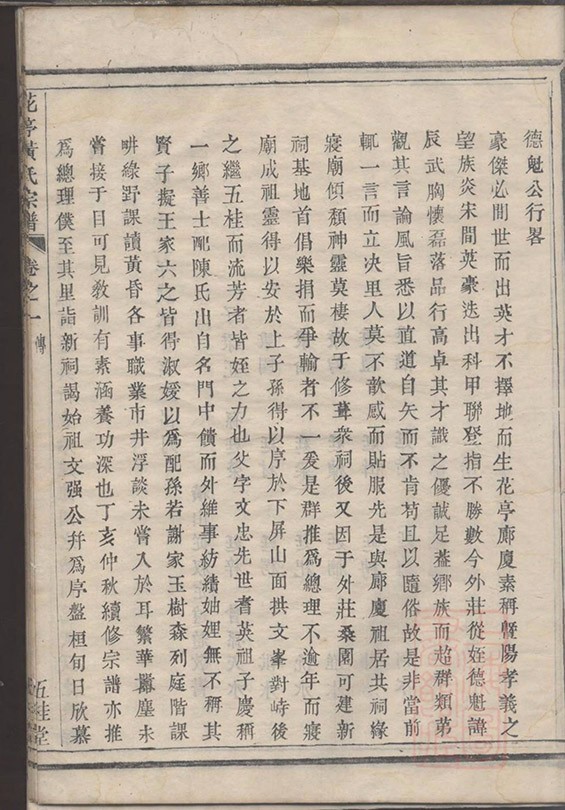 德魁公行畧
豪傑必間世而出英才不擇地而生花亭廊廈素稱曁陽孝義之
望族炎宋間英豪迭出科甲聯登指不勝數今外莊從姪德魁諱
辰武胸懷磊落品行高卓其才識之優誠足葢鄉族而超群類弟
觀其言論風旨悉以直道自矢而不肯苟且以隨俗故是非當前
輒一言而立决里人莫不歆感而貼服先是與廊廈祖居共祠緣
寢廟傾頽神靈莫棲故于修葺衆祠後又因于外莊桑園可建新
祠基地首倡樂捐而爭輸者不一爰是群推爲總理不逾年而寢
廟成祖靈得以安於上子孫得以序於下屏山面拱文峯對峙後
之繼五桂而流芳者皆姪之力也父字文忠先世耆英祖子慶稱
一鄉善士配陳氏出自名門中饋而外維事紡績妯娌無不稱其
賢子擬王家六之皆得淑媛以爲配孫若謝家玉樹森列庭階課
畊綠野課讀黃昏各事職業市井浮談未嘗入於耳繁華囂塵未
嘗接于目可見敎訓有素涵養功深也丁亥仲秋續修宗譜亦推
爲總理僕至其里詣新祠謁始祖文强公幷爲序盤桓旬日欣慕
花亭黃氏宗譜
卷之一
傳
五桂堂